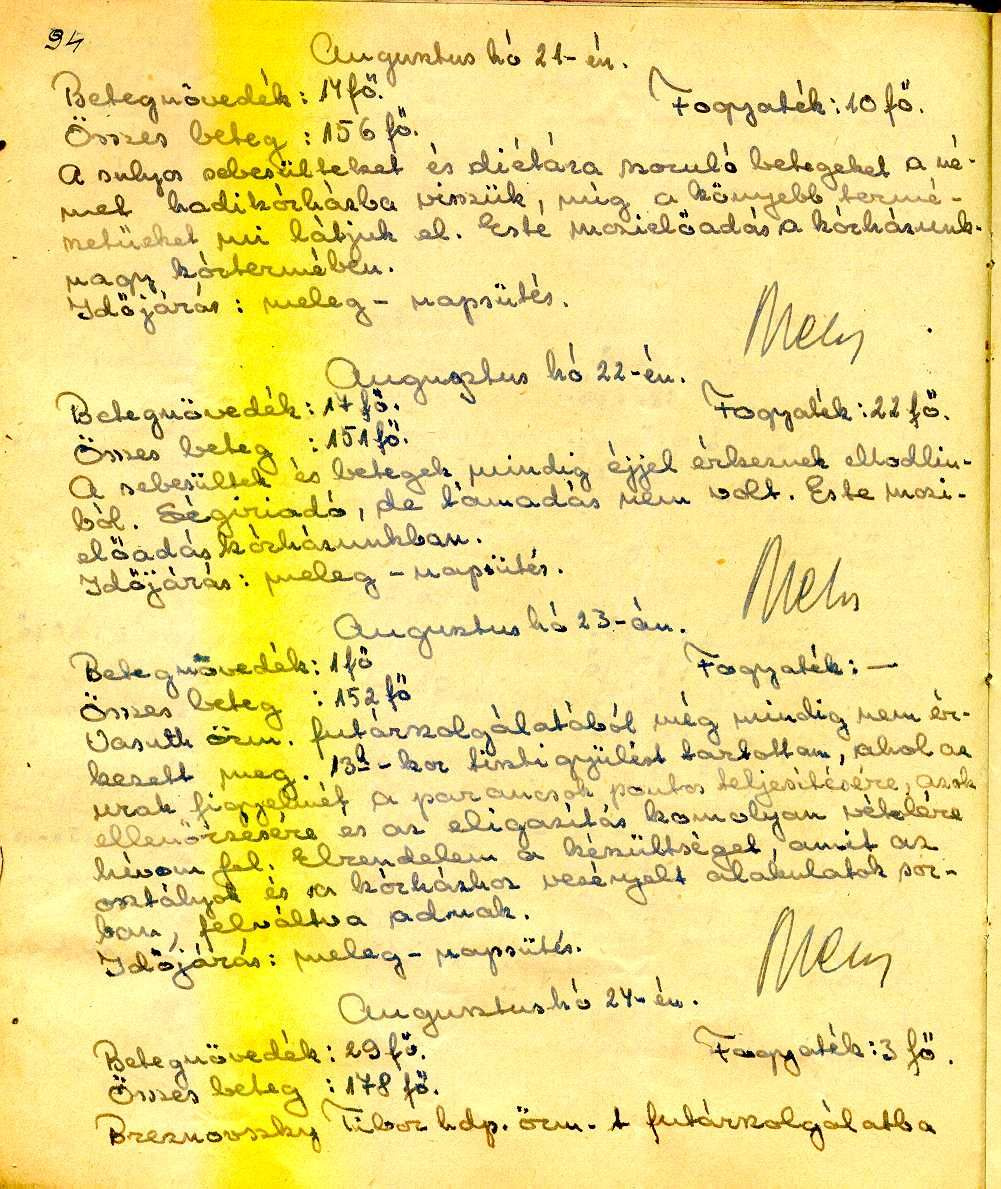 94
Augusztus hó 21-én.
Betegnövedék: 17 fő. Fogyaték: 10 fő.
Összes beteg : 156 fő.
A sulyos sebesülteket és diétára szoruló betegeket a né-
met hadikórházba visszük, míg a könyebb termé-
szetüeket mi látjuk el. Este mozielőadás a kórházunk
nagy kórtermében.
Időjárás: meleg - napsütés.
Augusztus hó 22-én.
Betegnövedék: 17 fő. Fogyaték: 22 fő.
Összes beteg : 151 fő.
A sebesültek és betegek mindig éjjel érkeznek Modlin-
ból. Légiriadó, de támadás nem volt. Este mozi-
előadás kórházunkban.
Időjárás: meleg - napsütés.
Augusztus hó 23-án.
Betegnövedék: 1 fő Fogyaték: —
Összes beteg : 152 fő
Vasuth őrm. futárszolgálatából még mindig nem ér-
kezett meg. 13h-kor tiszti gyülést tartottam, ahol az
urak figyelmét a parancsok pontos teljesítésére, azok
ellenőrzésére és az eligazítás komolyan vételére
hívom fel. Elrendelem a készültséget, amit az
osztályok és a kórházhoz vezényelt alakulatok sor-
ban, felváltva adnak.
Időjárás: meleg - napsütés.
Augusztus hó 24-én.
Betegnövedék: 29 fő. Fogyaték: 3 fő.
Összes beteg : 178 fő.
Breznovszky Tibor hdp. őrm.-t futárszolgálatba